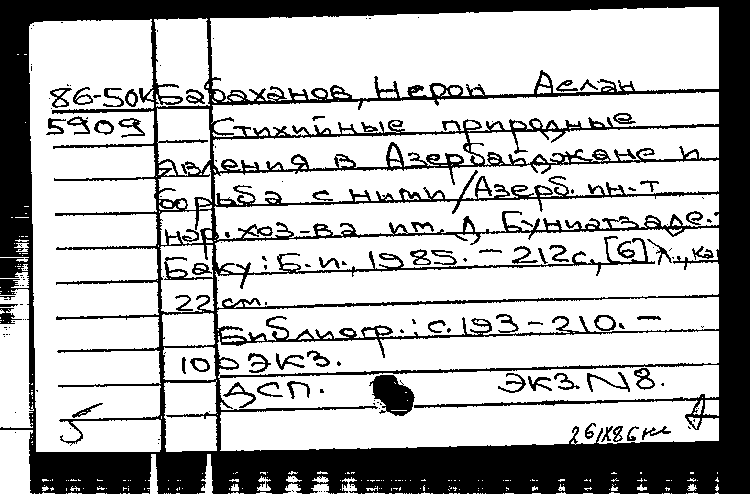 86-50К Бабаханов, Нерон Аслан
5909 Стихийные природные
явления в Азербайджане и
борьба с ними/Азерб. ин-т
нар. хоз-ва им. Д. Буниатзаде.-
Баку: Б.и., 1985. - 212с., [6] л., ка
22 см.
Библиогр.: с. 193-210. -
100 экз.
ДСП. Экз. N 8.